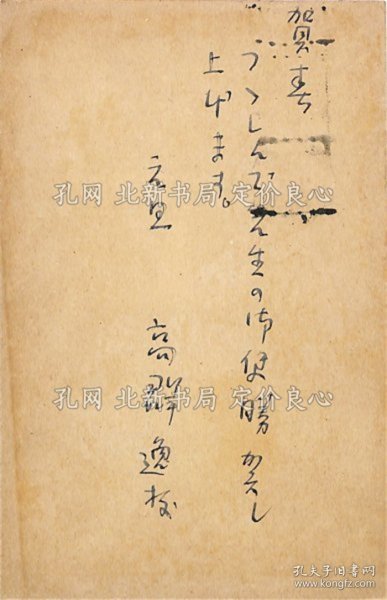 賀春
つゝしんで先生の御健勝賀し
上げます。
元旦 高群逸枝
孔网 北新书局 定价良心
孔网 北新书局 定价良心
孔夫子旧书网
www.kongfz.com